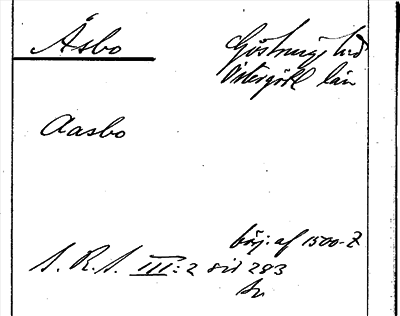 Åsbo
Göstrings hd
Östergötl län
Aasbo
börj. af 1500-t
S. R. S. III: 2 sid 293